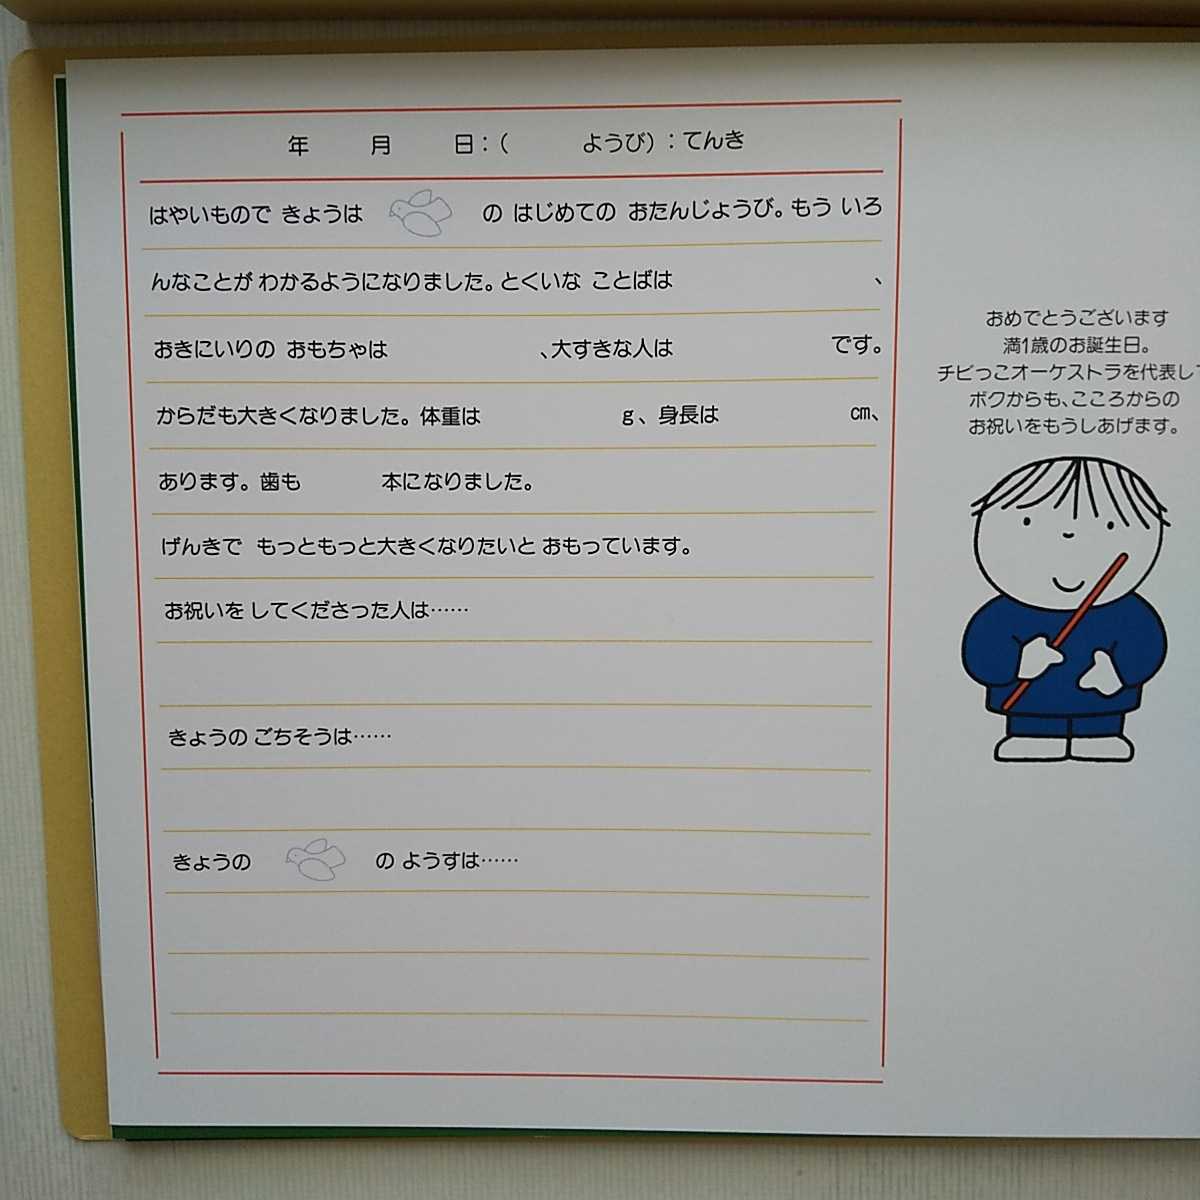 年 月 日：（ ようび）：てんき
はやいもので きょうは の はじめての おたんじょうび。もう いろ
んなことが わかるようになりました。とくいな ことばは 、
おきにいりの おもちゃは 、大すきな人は です。
からだも大きくなりました。体重は g、身長は cm、
あります。歯も 本になりました。
げんきで もっともっと大きくなりたいと おもっています。
お祝いを してくださった人は……
きょうの ごちそうは……
きょうの の ようすは……
おめでとうございます
満1歳のお誕生日。
チビっこオーケストラを代表して
ボクからも、こころからの
お祝いをもうしあげます。